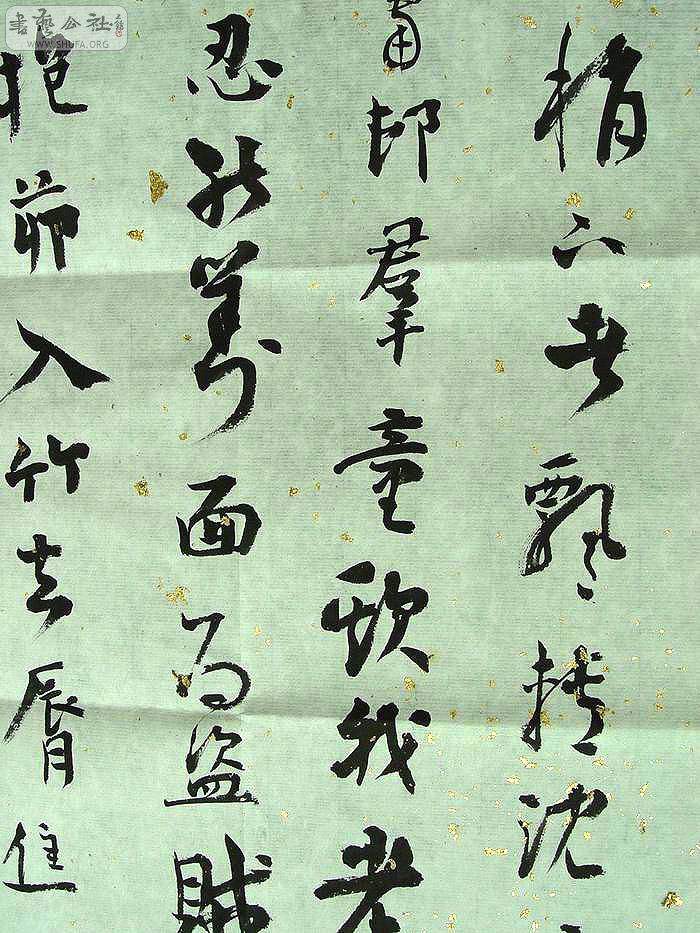 書藝公社
WWW.SHUFA.ORG
梢下者飄轉沈
南邨羣童欺我老
忍能對面為盜賊
抱茆入竹去脣焦